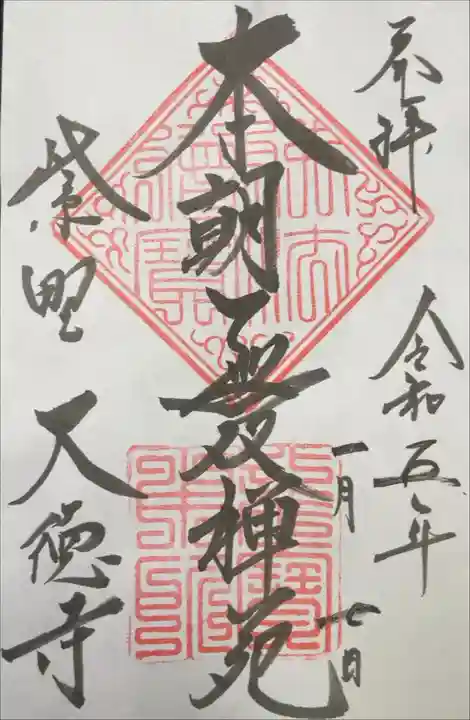 奉拝
令和五年
一月
七日
本朝無双禅苑
紫野 大徳寺